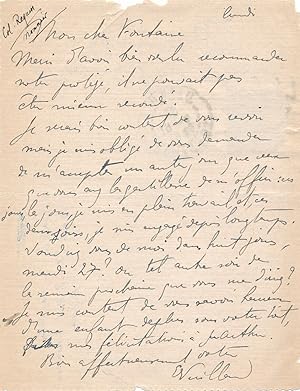 lundi
Mon cher Fontaine
Merci d'avoir bien voulu recommander
notre protégé, il ne pouvait pas
être mieux recommandé!
Je serais bien content de vous revoir
mais je suis obligé de vous demander
de m'accepter un autre jour que ceux
que vous avez la gentillesse de m'offrir
jours, je suis en plein travail et ces
deux soirs, je suis engagé depuis longtemps.
Voudriez vous de moi dans huit jours,
mardi 27? ou tel autre soir de
la semaine prochaine que vous me direz?
Je suis content de vous savoir heureux
d'un enfant de plus sous votre toit,
mes félicitations à Marthe.
Bien affectueusement votre
Vuillard